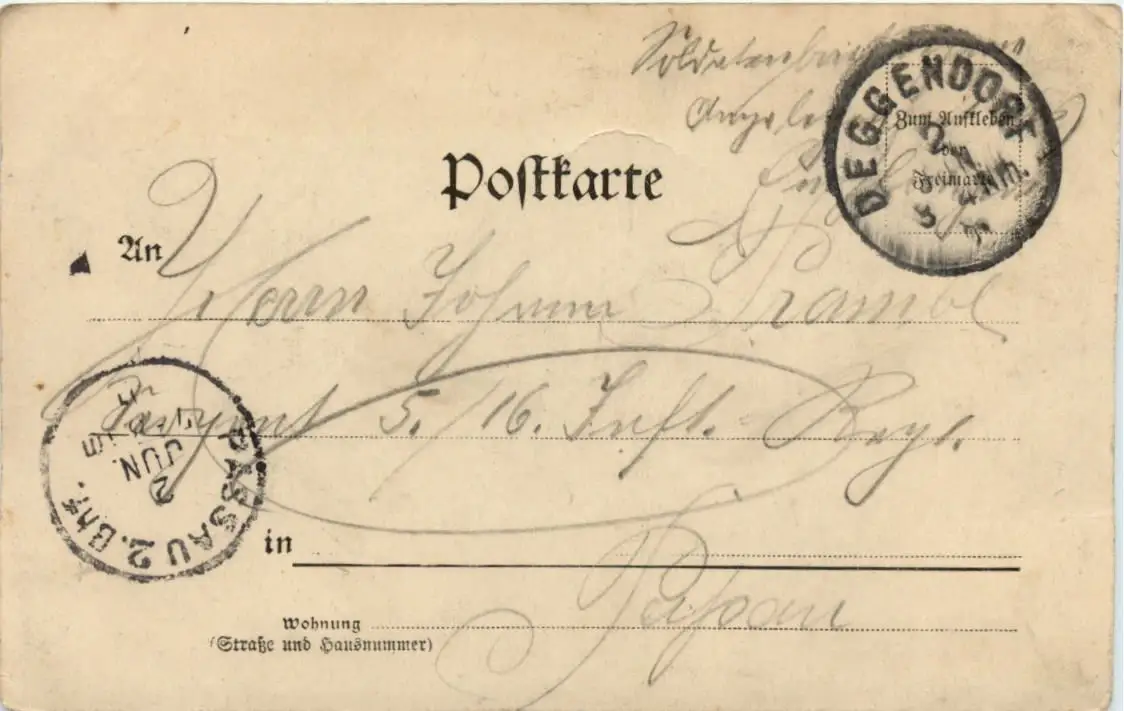 Soldatenbrief
DEGGENDORF
Zum Aufkleben
der
Freimarke
Postkarte
An
Herrn Johann Prambl
Sergeant 5./16. Inft. Regt.
PASSAU 2. Bhf.
2
JUN.
in
Passau
Wohnung
(Straße und Hausnummer)